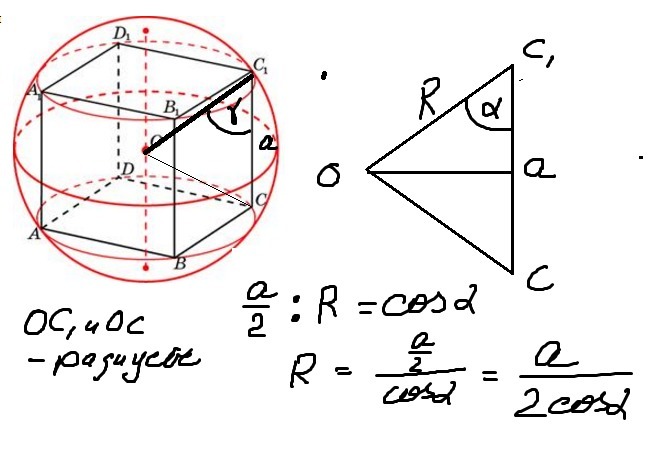 D₁
C₁
A₁
B₁
γ
a
O
D
C
A
B
C₁
R
α
O
a
C
OC₁ и OC
– радиусы
a/2 : R = cosα
R = (a/2)/cosα = a/(2cosα)